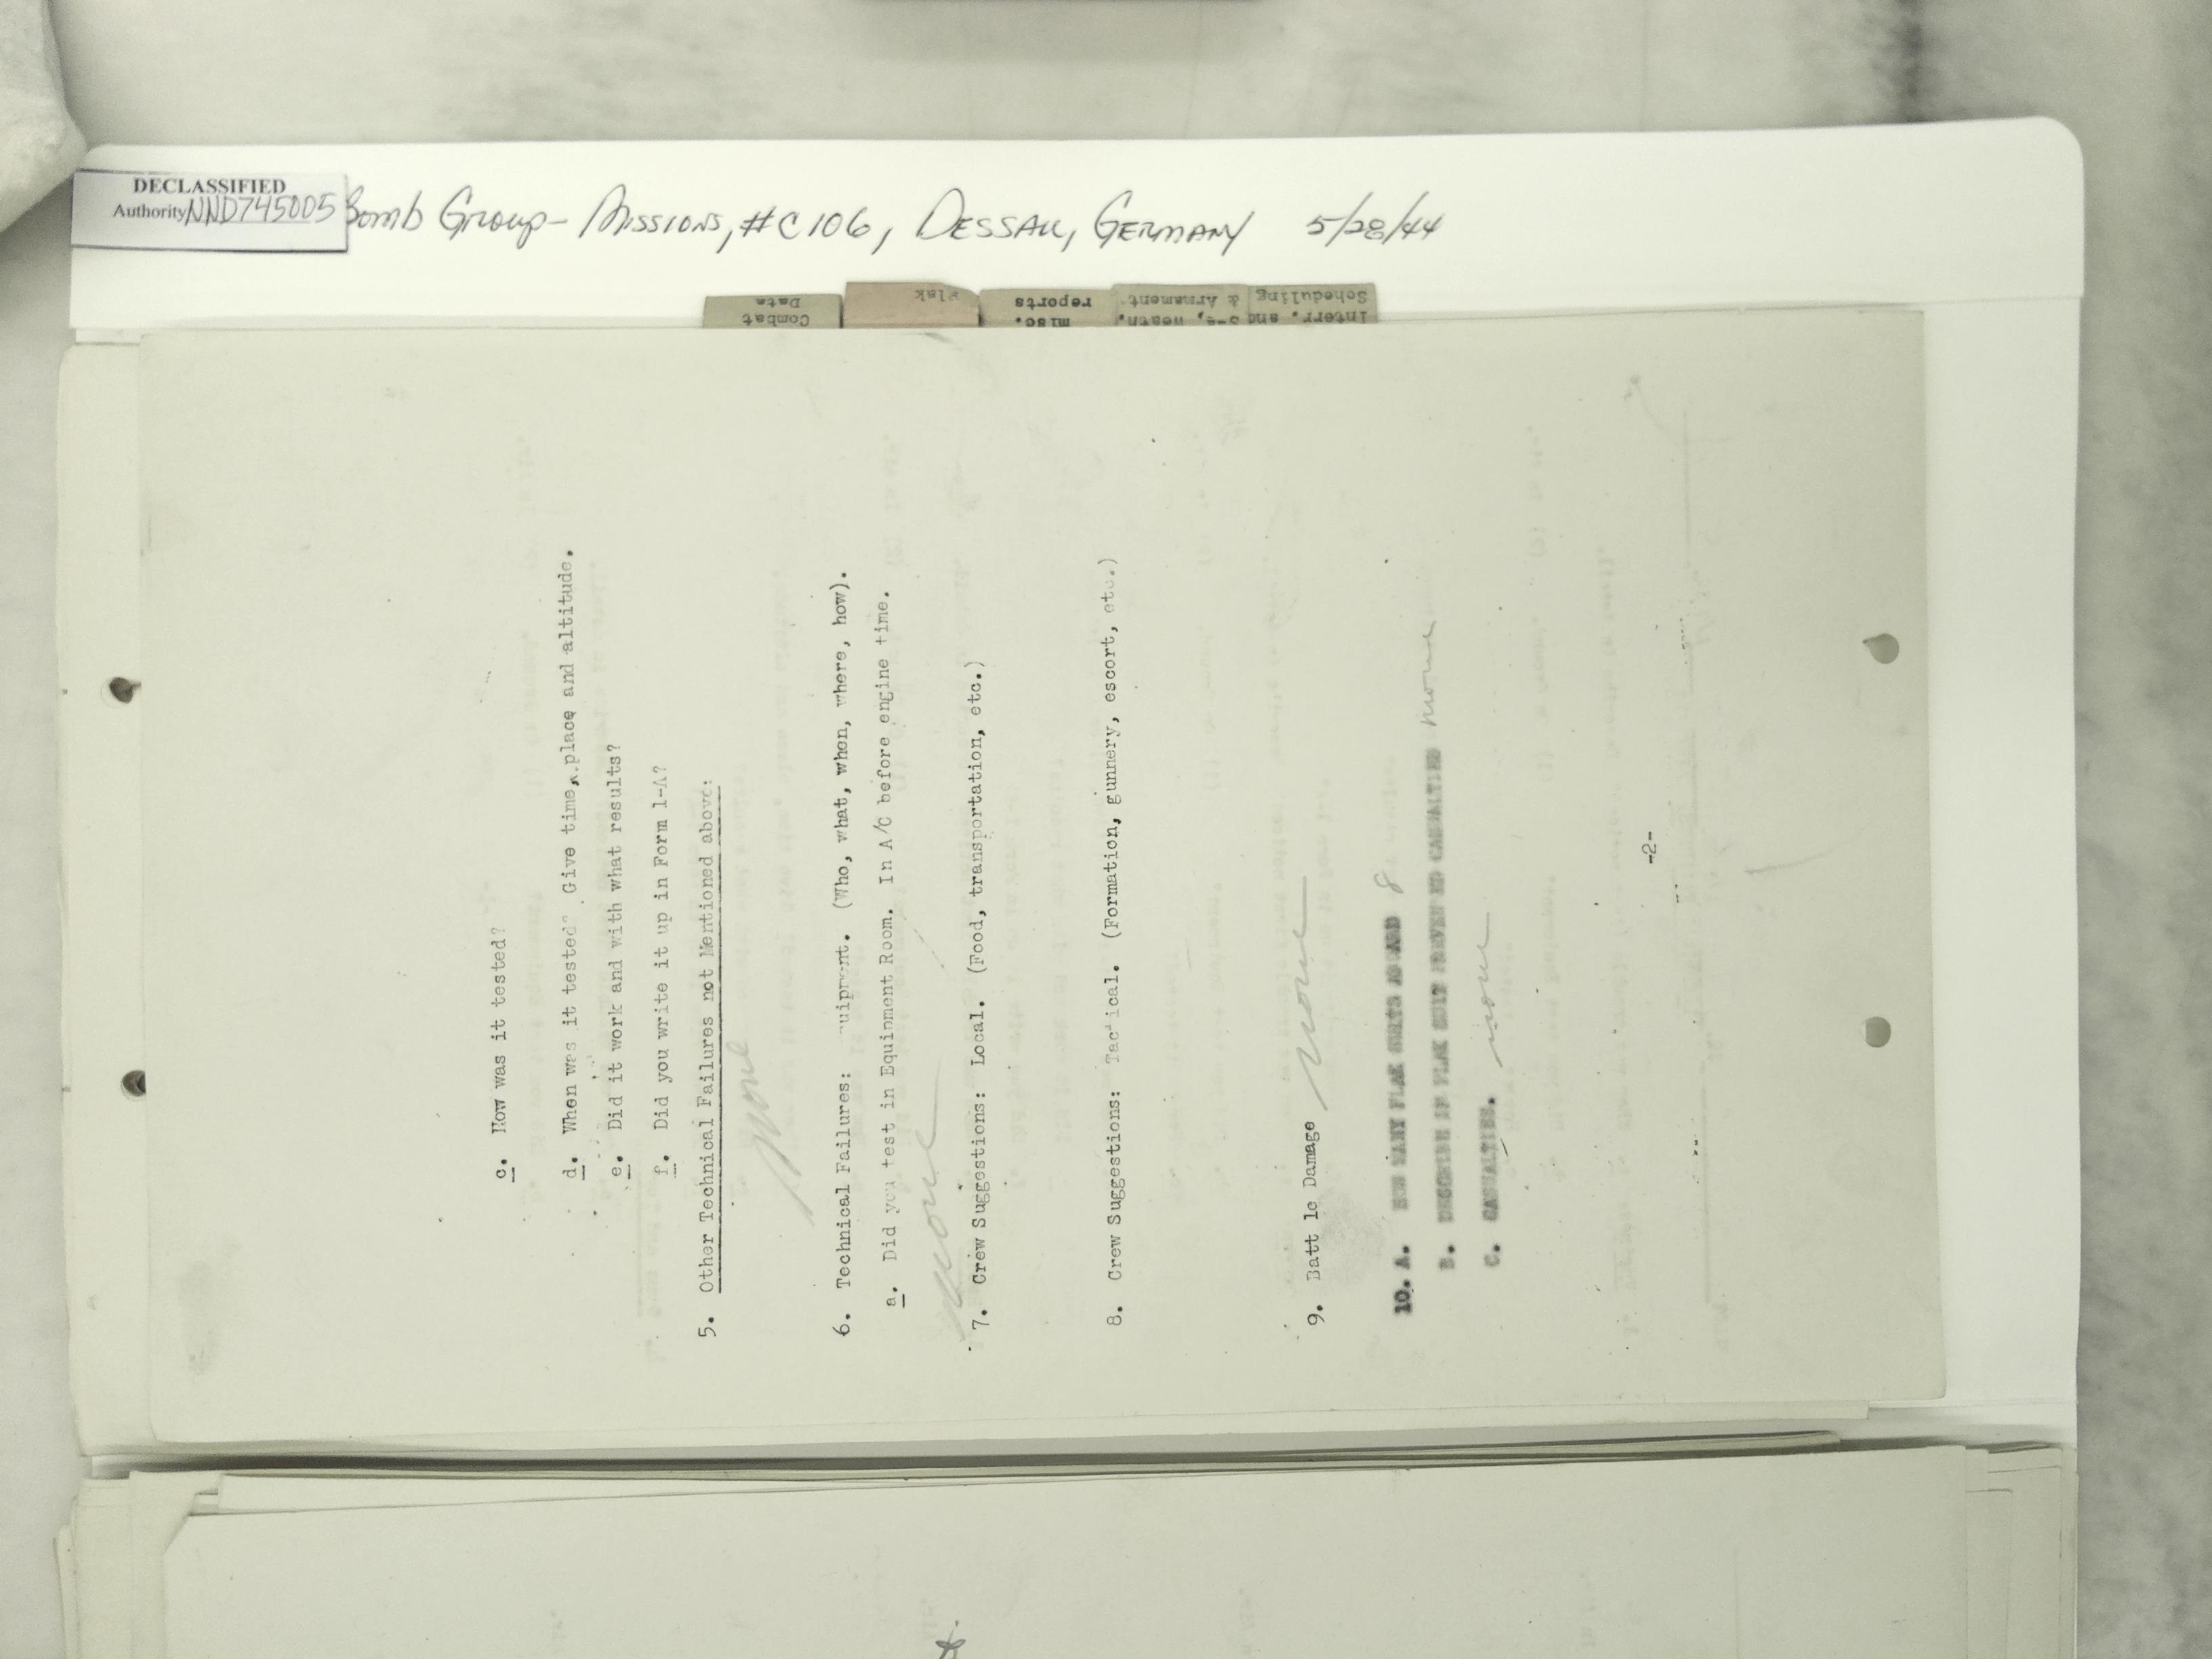 DECLASSIFIED
Authority NND745005
Bomb Group - Missions, #C106, Dessau, Germany 5/28/44
Combat
Data
Flak
misc.
reports
Interr. and S-2, Weath.
Scheduling & Armament
c. How was it tested?
d. When was it tested? Give time, place and altitude.
e. Did it work and with what results?
f. Did you write it up in Form 1-A?
5. Other Technical Failures not Mentioned above:
None
6. Technical Failures: uipment. (Who, what, when, where, how).
a. Did you test in Equipment Room. In A/C before engine time.
None
7. Crew Suggestions: Local. (Food, transportation, etc.)
8. Crew Suggestions: Tactical. (Formation, gunnery, escort, etc.)
9. Batt le Damage None
10. A. HOW MANY FLAK SUITS ABOARD 8
B. DESCRIBE IF FLAK SUIT PREVENTED CASUALTIES None
C. CASUALTIES. None
-2-